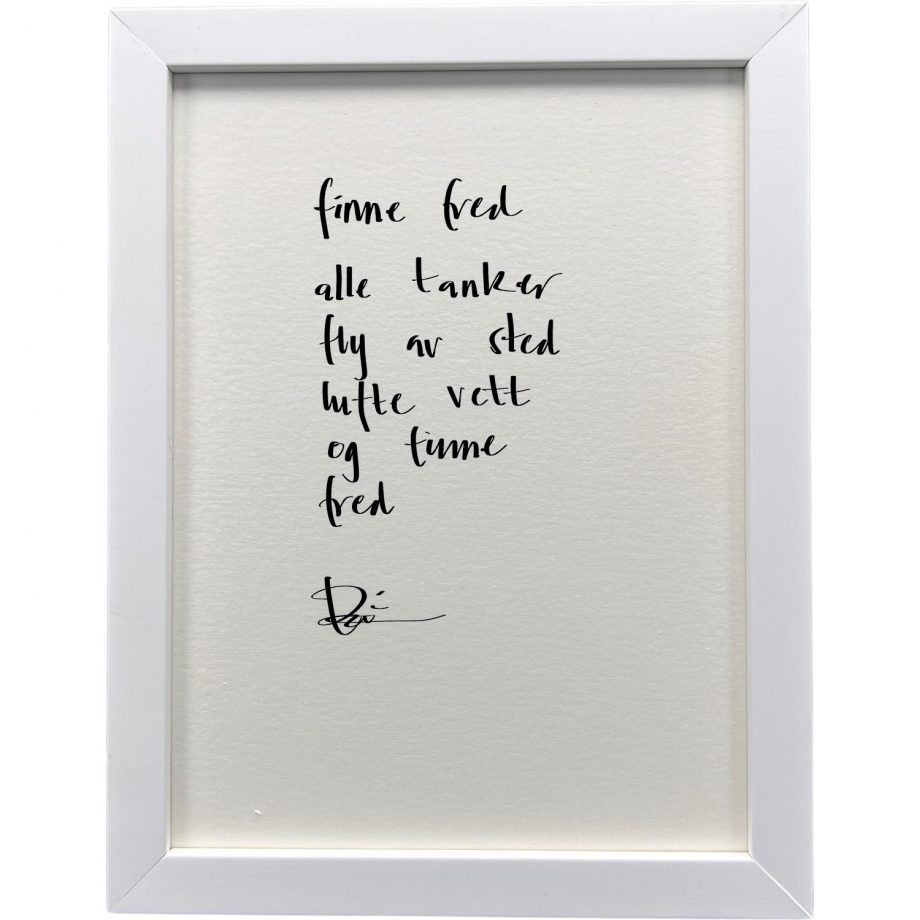 finne fred
alle tanker
fly av sted
lufte vett
og finne
fred